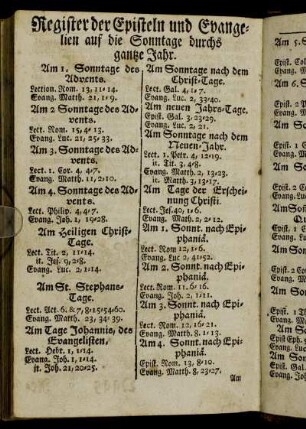 Register der Episteln und Evange-
lien auf die Sonntage durchs
gantze Jahr.
Am 1. Sonntage des
Advents.
Lection. Rom. 13, 11-14.
Evang. Matth. 21, 1-9.
Am 2 Sonntage des Ad-
vents.
Lect. Rom. 15, 4-13.
Evang. Luc. 21, 25-33.
Am 3. Sonntage des Ad-
vents.
Lect. 1. Cor. 4, 4-7.
Evang. Matth. 11, 2-10.
Am 4. Sonntage des Ad-
vents.
Lect. Philip. 4, 4-7.
Evang. Joh. 1, 19-28.
Am Heiligen Christ-
Tage.
Lect. Tit. 2, 11-14.
it. Jes. 9, 2-8.
Evang. Luc. 2, 1-14.
Am St. Stephans-
Tage.
Lect. Act. 6. & 7, 8-15. 54. 60.
Evang. Matth. 23, 34-39.
Am Tage Johannis, des
Evangelisten.
Lect. Hebr. 1, 1-14.
Evang. Joh. 1, 1-14.
it. Joh. 21, 20-25.
Am Sonntage nach dem
Christ-Tage.
Lect. Gal. 4, 1-7.
Evang. Luc. 2, 33-40.
Am neuen Jahrs-Tage.
Epist. Gal. 3, 23-29.
Evang. Luc. 2, 21.
Am Sonntage nach dem
Neuen-Jahr.
Lect. 1. Petr. 4, 12-19.
it. Tit. 3, 4-8.
Evang. Matth. 2, 13-23.
it. Matth. 3, 13-17.
Am Tage der Erschei-
nung Christi.
Lect. Jes. 60, 1-6.
Evang. Matth. 2, 1-12.
Am 1. Sonnt. nach Epi-
phaniä.
Lect. Rom 12, 1-6.
Evang. Luc 2, 41-52.
Am 2. Sonnt. nach Epi-
phaniä.
Lect. Rom. 11. 6-16.
Evang. Joh. 2, 1-11.
Am 3. Sonnt. nach Epi-
phaniä.
Lect. Rom. 12, 16-21.
Evang. Matth. 8, 1-13.
Am 4. Sonnt. nach Epi-
phaniä.
Epist. Rom. 13, 8-10.
Evang. Matth. 8. 23-27.
Am